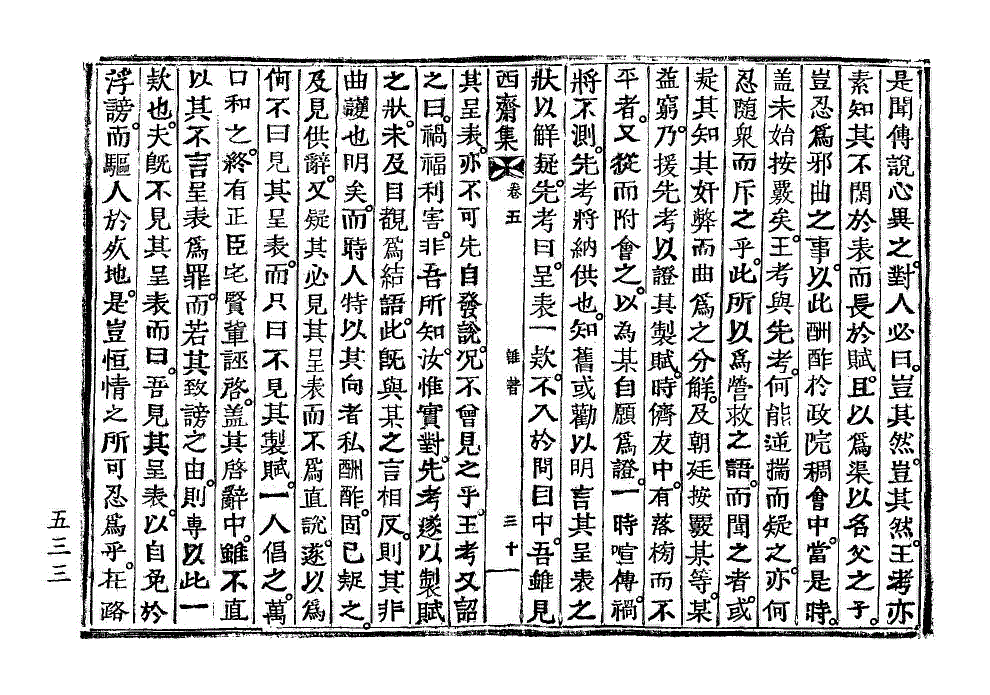 是聞傳說心異之。對人必曰。豈其然。豈其然。王考亦
素知其不閑於表而長於賦。且以爲渠以名父之子。
豈忍爲邪曲之事。以此酬酢於政院稠會中。當是時。
盖未始按覈矣。王考與先考。何能逆揣而疑之。亦何
忍隨衆而斥之乎。此所以爲營救之語。而聞之者。或
疑其知其奸弊而曲爲之分解。及朝廷按覈某等。某
益窮。乃援先考以證其製賦。時儕友中。有落榜而不
平者。又從而附會之。以為某自願爲證。一時喧傳。禍
將不測。先考將納供也。知舊或勸以明言其呈表之
狀以解疑。先考曰。呈表一欵。不入於問目中。吾雖見
西齋集 卷五 雜著 三十一
其呈表。亦不可先自發說。况不曾見之乎。王考又詔
之曰。禍福利害。非吾所知。汝惟實對。先考遂以製賦
之狀。未及目覩爲結語。此旣與某之言相反。則其非
曲護也明矣。而時人特以其向者私酬酢。固已疑之。
及見供辭。又疑其必見其呈表而不爲直說。遂以爲
何不曰見其呈表。而只曰不見其製賦。一人倡之。萬
口和之。終有正臣宅賢輩誣啓。盖其啓辭中。雖不直
以其不言呈表爲罪。而若其致謗之由。則專以此一
欵也。夫旣不見其呈表而曰。吾見其呈表。以自免於
浮謗。而驅人於死地。是豈恒情之所可忍爲乎。在路
五三三